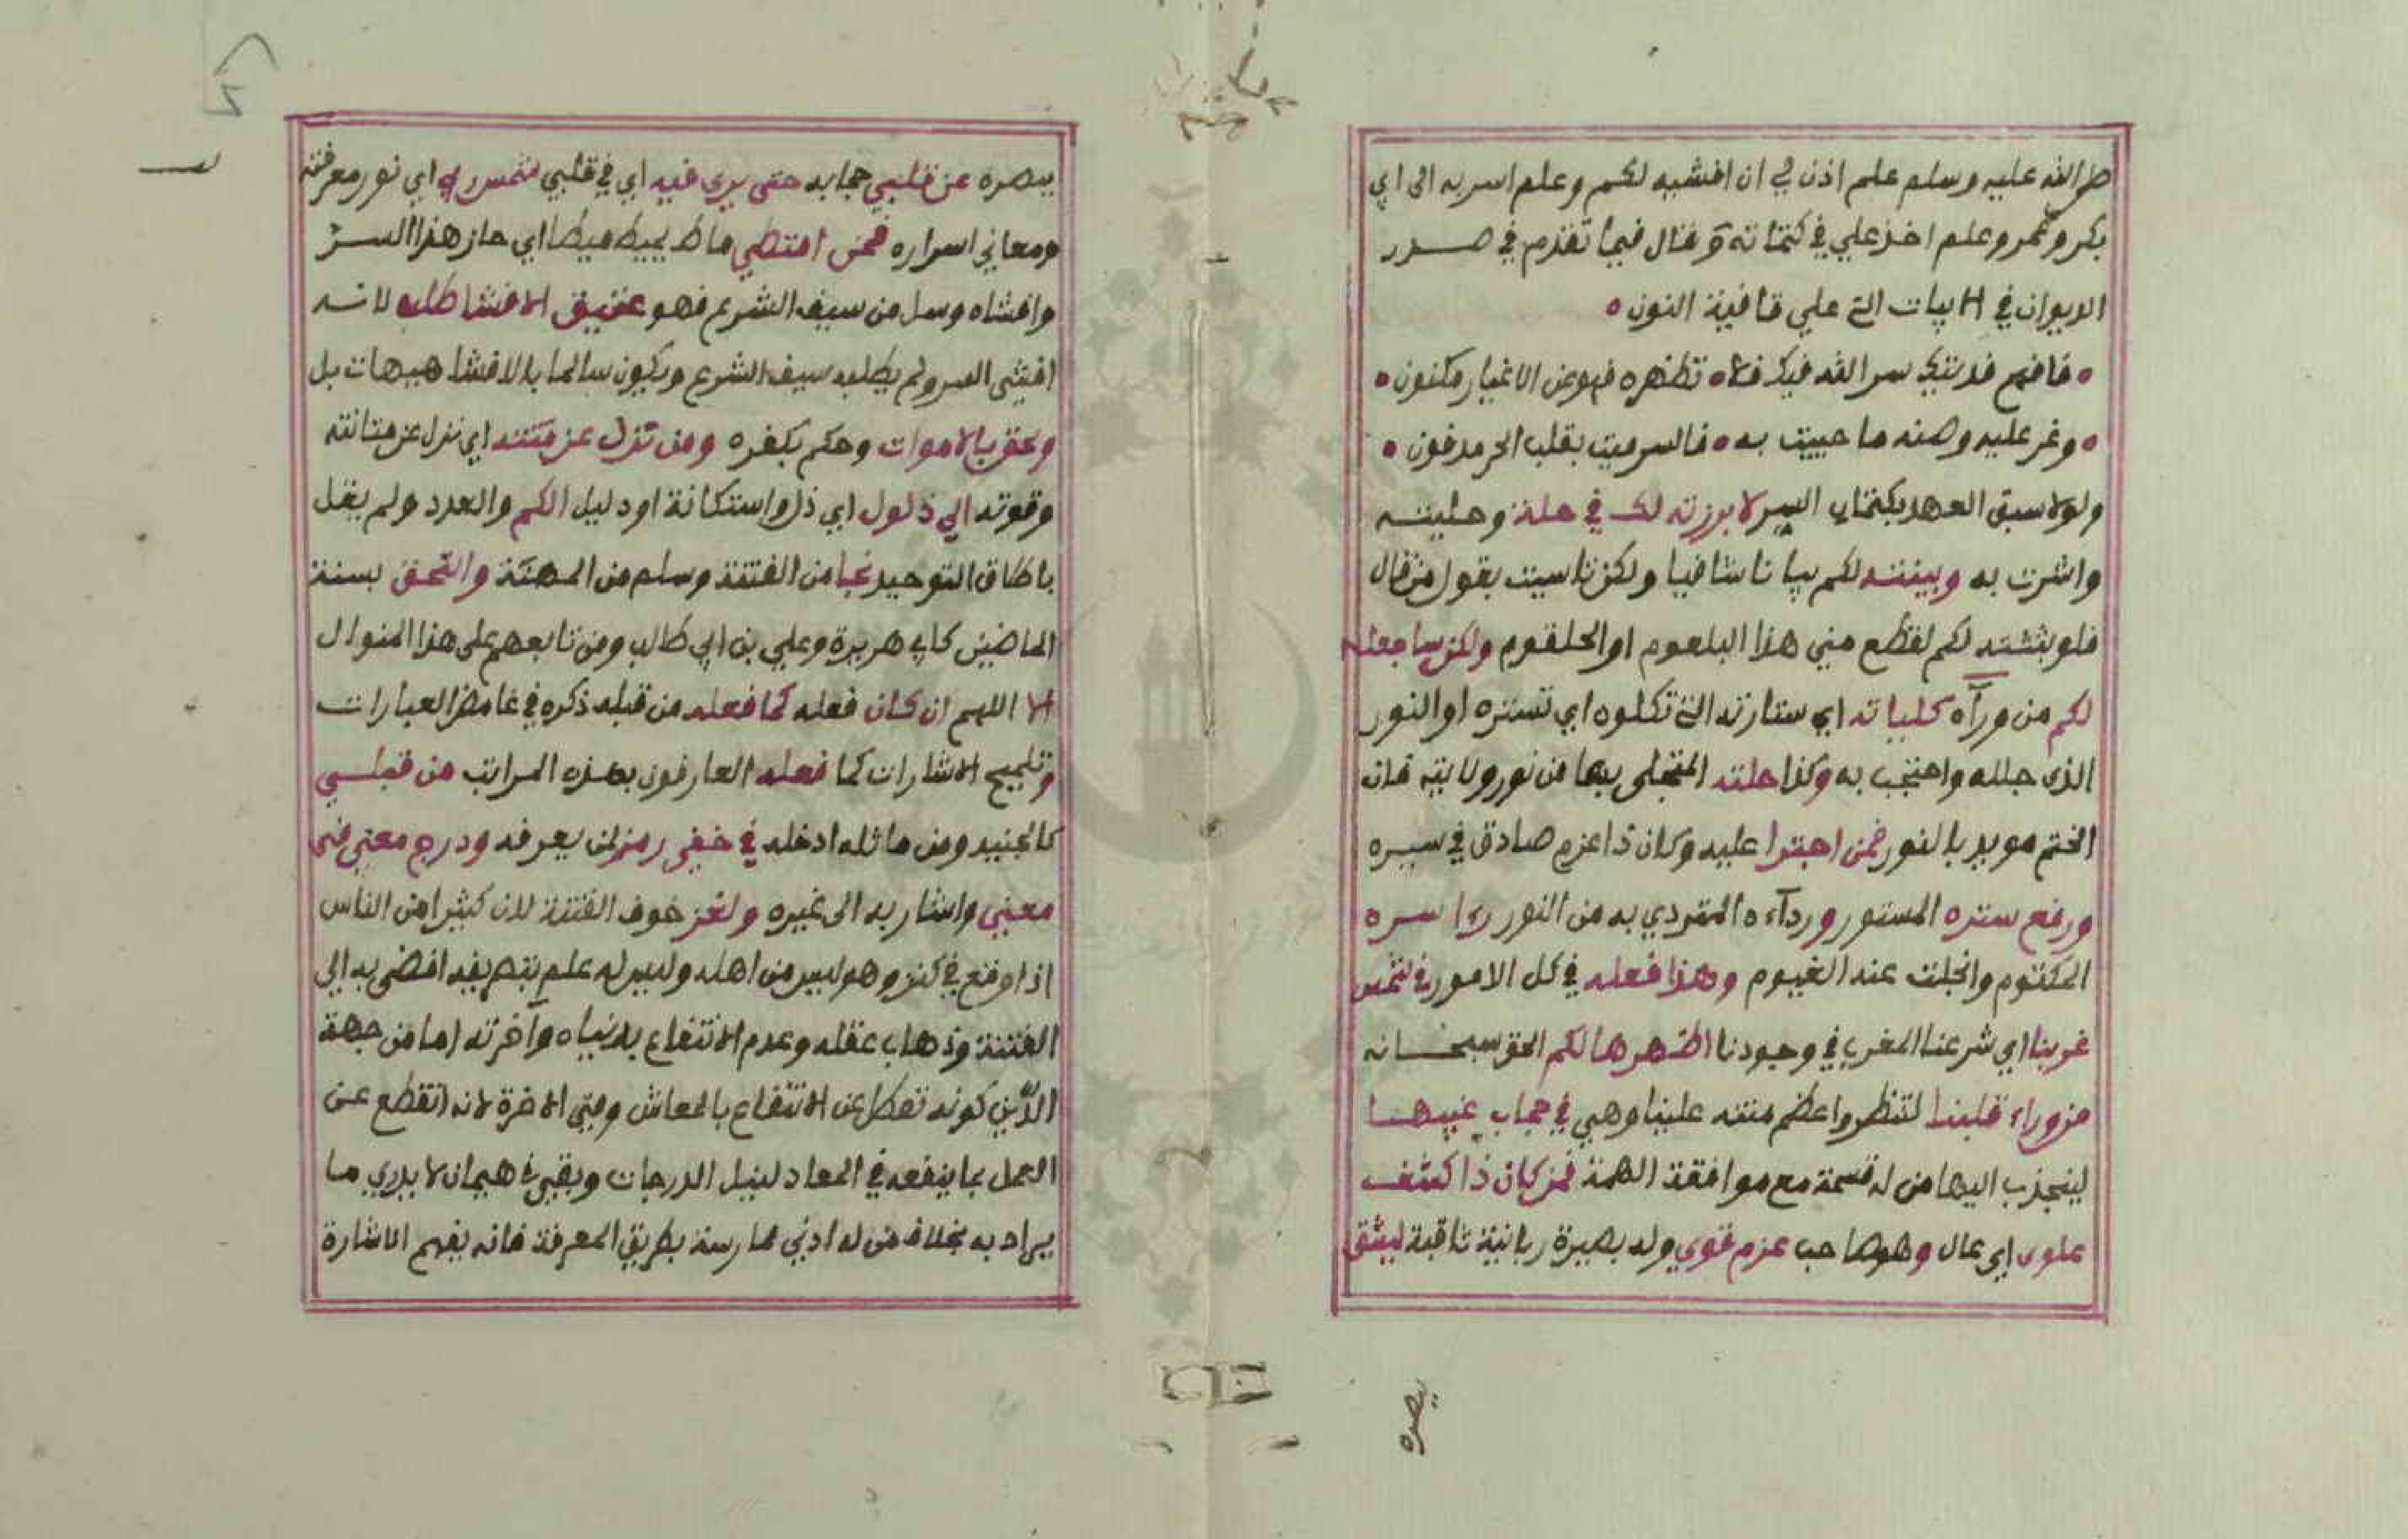 صلى الله عليه وسلم علم اذن لي ان افشيه لكم وعلم اسر به الى ابي
بكر وعمر وعلم اخذ علي في كتمانه وقال فيما تقدم في صدر
الديوان في الابيات التي علي قافية النون
فافهم فديتك سر الله فيك فلا تظهره فهو عن الاغيار مكنون
وغر عليه وصنه ما حييت به فالسر ميت بقلب الحر مدفون
ولولا سبق العهد بكتمان السر لابرزته لك في حلة وحلية
واشرت به وبينته لكم بيانا شافيا ولكن تاسيت بقول من قال
فلو بثثته لكم لقطع مني هذا البلعوم او الحلقوم ولكن ساجعله
لكم من ورآه كلياته اي ستارته التي تكلوه اي تستره او النور
الذي جلله واحتجب به وكذا حلته المتجلى بها من نور ولايته فان
الختم مويد بالنور فمن اجترا عليه وكان ذا عزم صادق في سيره
ورفع ستره المستور وردآءه المتردي به من النور راا سره
المكتوم وانجلت عنه الغيوم وهذا فعله في كل الامور في شمس
غربنا اي شرعنا المغرب في وجودنا اظهرها لكم الحق سبحانه
من وراء قلبنا لتنظروا عظم منته علينا وهي في حجاب غيبها
لينجذب اليها من له قسمة مع موافقة الهمة فمن كان ذا كشف
علوي اي عال وهو صاحب عزم قوي وله بصيرة ربانية ثاقبة ليشق
بصره
بصره عن قلبي حجابه حتى يري فيه اي في قلبي شمس ربي اي نور معرفته
ومعاني اسراره فمن امتطي ماط يميط ميطا اي حاز هذا السر
وافشاه وسل من سيف الشرع فهو عتيق الافشا طلبه لانه
افشى السر ولم يطلبه سيف الشرع ويكون سالما بالافشا هيهات بل
ولحق بالاموات وحكم بكفره ومن نزل عن متنه اي نزل عن متانته
وقوته الي ذلول اي ذل واستكانة او دليل الكم والعدد ولم يقل
باطلاق التوحيد نجا من الفتنة وسلم من المحنة والتحق بسنة
الماضين كابي هريرة وعلي بن ابي طالب ومن تابعهم على هذا المنوال
الا اللهم ان كان فعله كما فعله من قبله ذكره في غامض العبارات
وتلميح الاشارات كما فعله العارفون بهذه المراتب من قبلي
كالجنيد ومن ماثله ادخله في خفي رمز لمن يعرفه ودرج معني في
معني واشار به الى غيره ولغز خوف الفتنة لان كثيرا من الناس
اذا وقع في كنز وهو ليس من اهله وليس له علم بتصريفه افضى به الي
الفتنة وذهاب عقله وعدم الانتفاع بدنياه وآخرته اما من جهة
الدين كونه تعطل عن الانتفاع بالمعاش ومتى الاخرة لانه انقطع عن
العمل بما ينفعه في المعاد لنيل الدرجات وبقي في هيمان لا يدري ما
يراد به بخلاف من له ادني ممارسة بطريق المعرفة فانه يفهم الاشارة